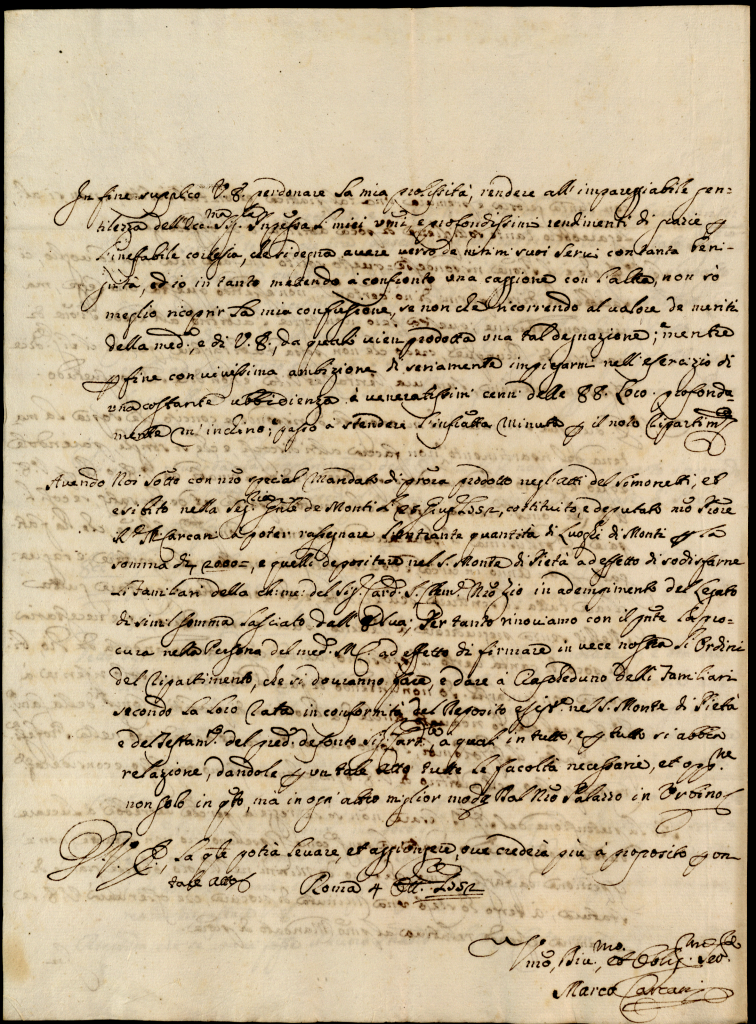 In fine supplico V. S. perdonare la mia prolissità, rendere all' impareggiabile gen-
tilezza dell' Ecc.ma Sig.ra i miei umi. e profondissimi rendimenti di grazie p
l' inefabile cortesia, che si degna avere verso de' infimi suoi servi con tanta beni-
gnità, ed io in tanto mettendo à confronto una cagione con l' altra, non sò
meglio ricoprir la mia confusione, se non che ricorrendo al valore de meriti
della med.a, e di V. S., da quali vien prodotta una tal degnazione; mentre
p fine con vivessima ambizione di seriamente impiegarmi nell' esercizio di
una costante ubbidienza à veneratissimi cenni delle SS. Loro profonda-
mente m' inchino; passo à stendere l' infratta Minuta p il noto Ripartim.to
Avendo Noi sotto con nro special Mandato di procra prodotto negli atti del Simonetti, et
esibito nella Seg.ria de Monti li 28 Giug. 1752, costituito, e deputato nro Pror.e
Marco Carcani à poter rassegnare quantità di Luoghi di Monti p la
somma di 2000, e quelli depositare nel S. Monte di Pietà ad effetto di sodisfarne
li Familiari della ch: me: del Sig. Card. S. Clem.te Nro Zio in adempimento del Legato
di simil somma lasciato dall' Em. Sua; Per tanto rinoviamo con il pnte la pro-
cura nella Persona del med.o M. C. ad effetto di firmare in vece nostra li Ordini
del Ripartimento, che si dovranno fare e dare à Ciascheduno delli Familiari
secondo la loro Rata in conformità del Deposito esist.e nel S. Monte di Pietà
e del Testam.to del pred.o defonto Sig. Card.le, à qual in tutto, e p tutto si abbia
relazione, dandole p un tale atto tutte le facoltà necessarie, et opp.ne
non solo in qto, mà in ogn' altro miglior modo Dal Nro Palazzo in Urbino
V. S., la qle potrà levare, et aggiongere, ove crederà più à proposito p un
tale atto Roma 4 1752
Umo, Div.mo, et Oblig.mo Ser.
Marco Carcani